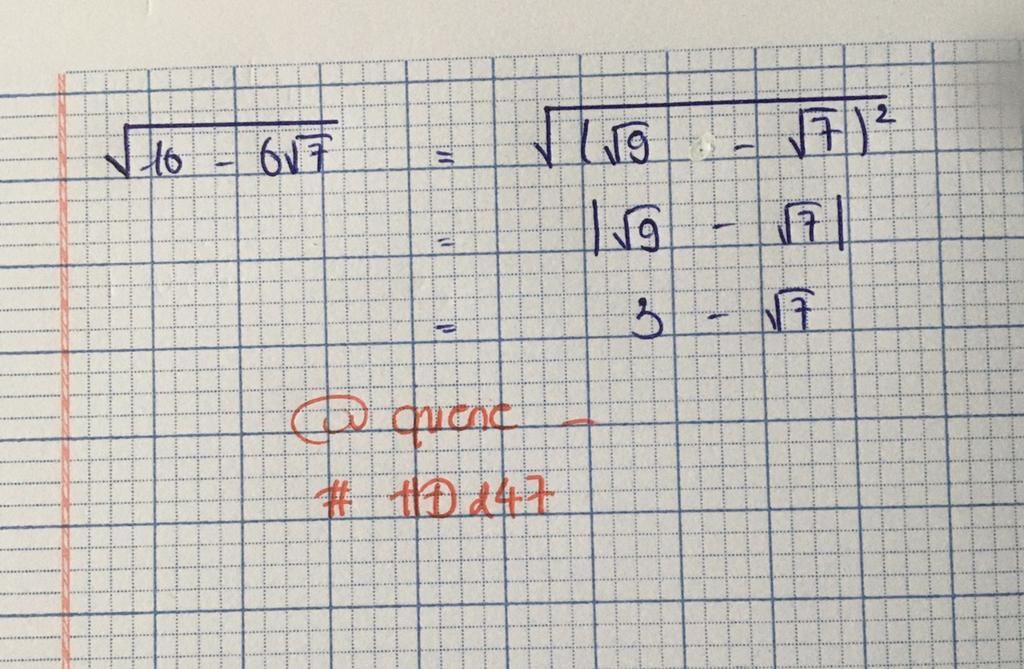 √16 - 6√7 = √(√9 - √7)²
= |√9 - √7|
= 3 - √7
@ quene _
# HD d47